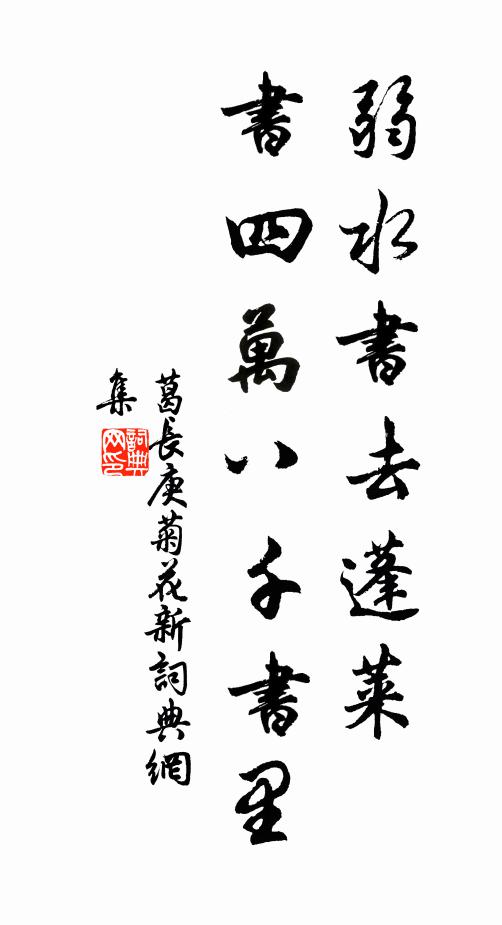 弱水書去蓬萊
書四萬八千書里
葛長庚菊花新詞典網
集
詞典
网印